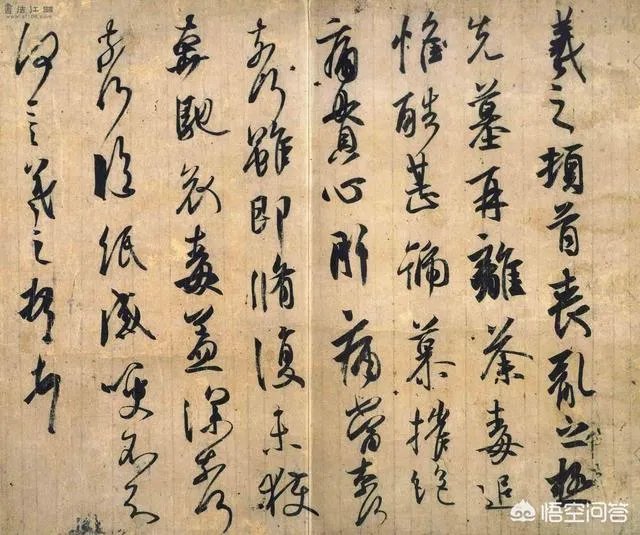 書法江湖
羲之頓首喪亂之極
先墓再離荼毒追
惟酷甚號慕摧絕
痛貫心肝痛當奈何
奈何雖即脩復未獲
奔馳哀毒益深奈何
奈何臨紙感哽不知
何言羲之頓首頓首
悟空问答